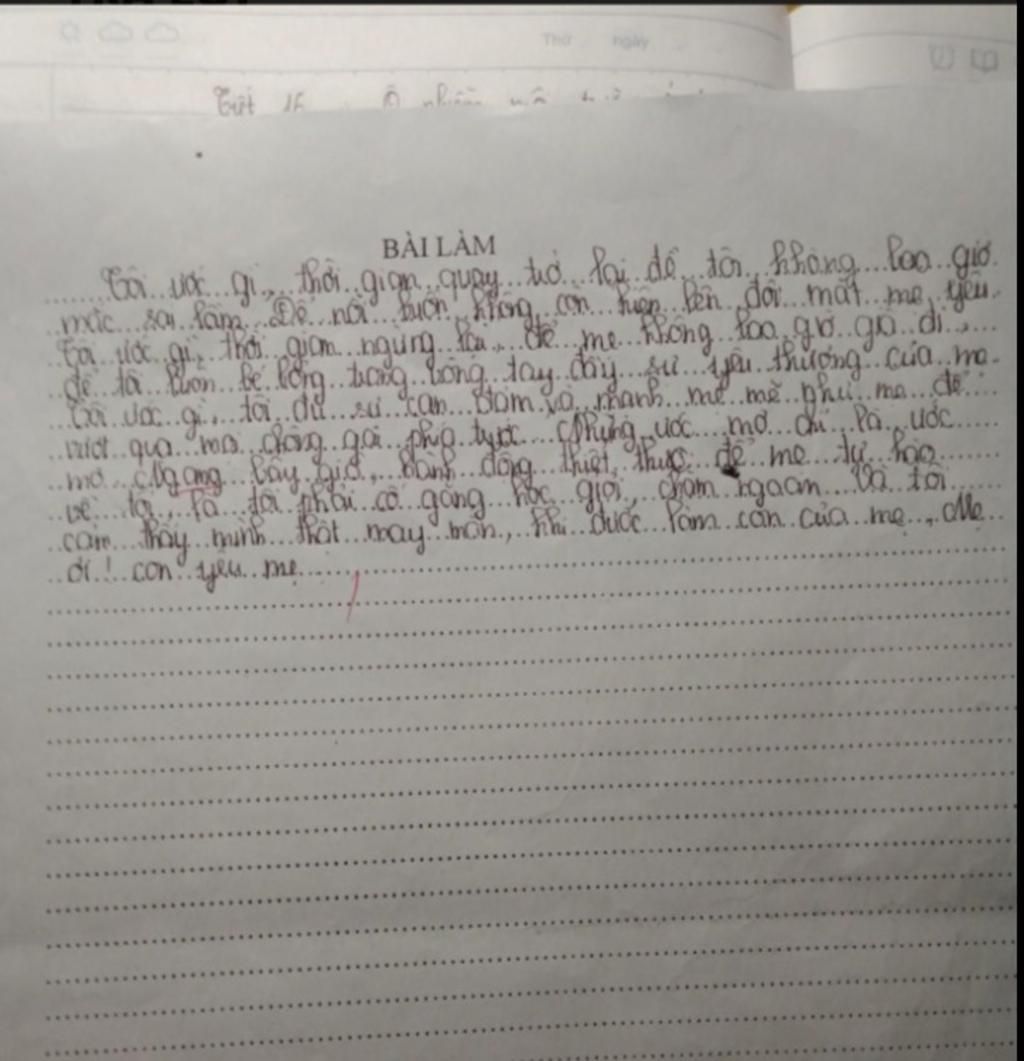 Thứ ngày
Tiết 16
BÀI LÀM
Tôi ước gì, thời gian quay trở lại để tôi không bao giờ
mắc sai lầm. Để nỗi buồn không còn hiện lên đôi mắt mẹ yêu
Tôi ước gì, thời gian ngừng lại, để mẹ không bao giờ già đi,
để tôi luôn bé bỏng trong vòng tay đầy sự yêu thương của mẹ.
Tôi ước gì, tôi đủ sự can đảm và mạnh mẽ mẽ như mẹ để
vượt qua mọi chông gai phía trước. Những ước mơ chỉ là ước
mơ. Ngang bây giờ, hành động thiết thực để mẹ tự hào
về tôi, là tôi phải cố gắng học giỏi, chăm ngoan. Và tôi
cảm thấy mình thật may mắn, khi được làm con của mẹ, Mẹ
ơi! con yêu mẹ